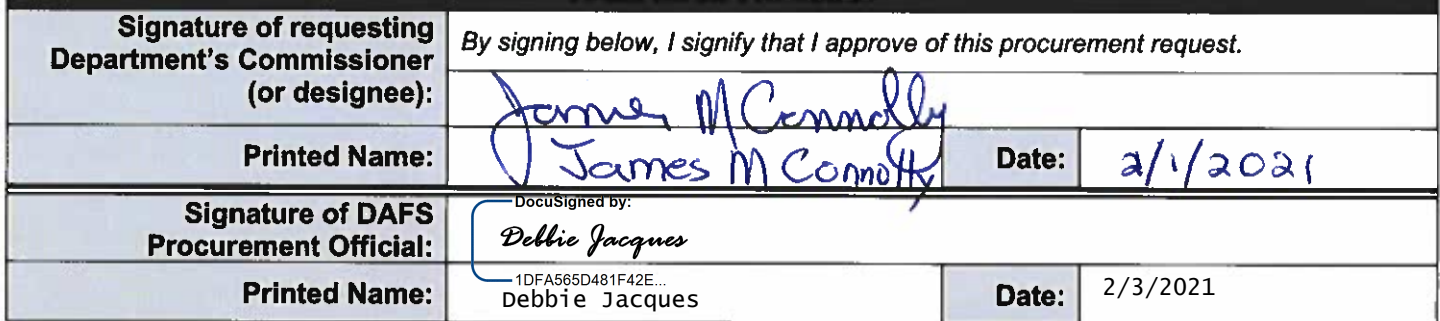 Signature of requesting
Department's Commissioner
(or designee):
By signing below, I signify that I approve of this procurement request.
James M Connolly
Printed Name:
James M Connolly
Date:
2/1/2021
Signature of DAFS
Procurement Official:
DocuSigned by:
Debbie Jacques
1DFA565D481F42E...
Printed Name:
Debbie Jacques
Date:
2/3/2021